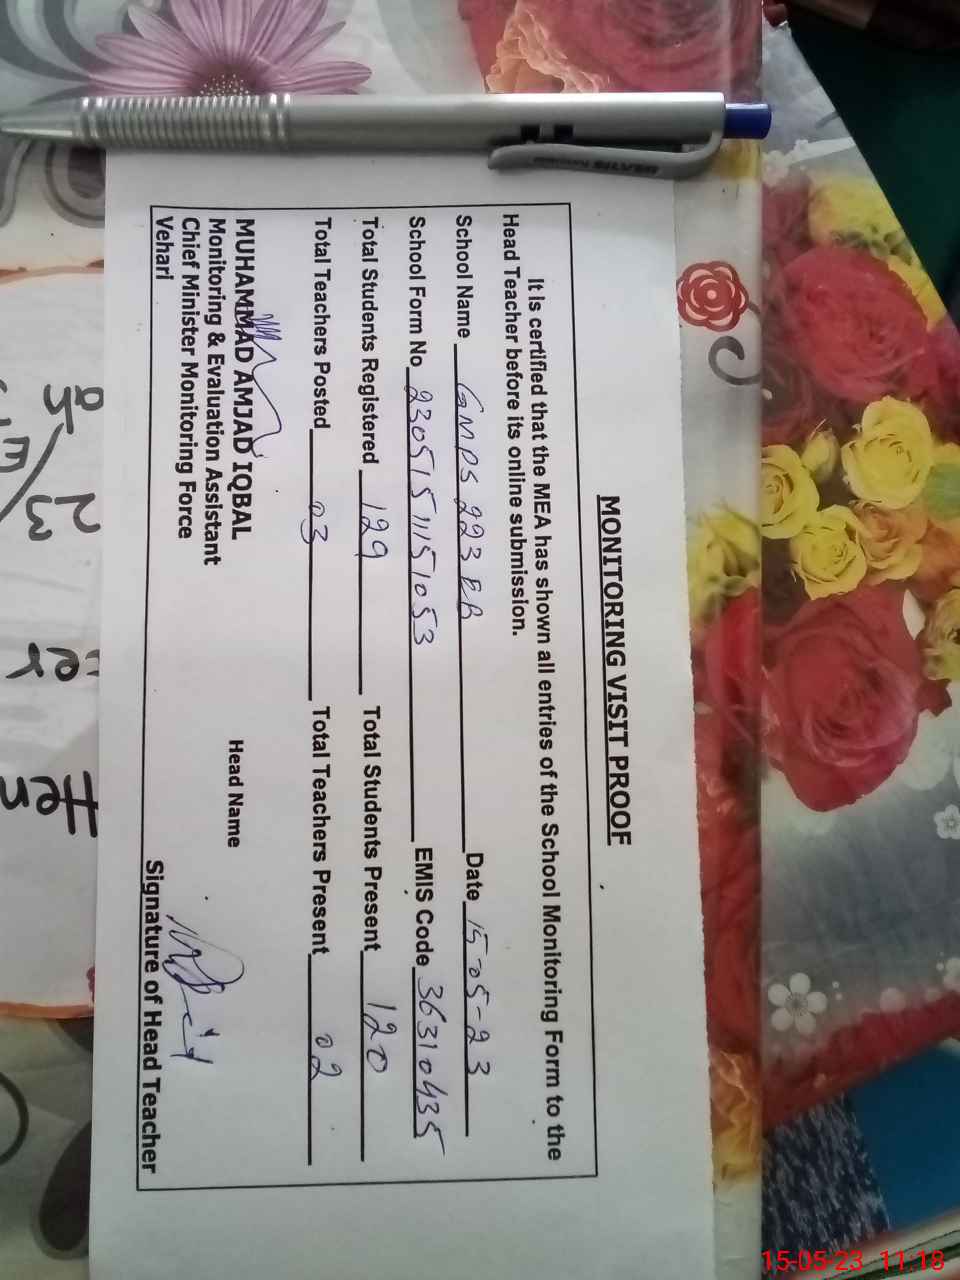 MONITORING VISIT PROOF
It is certified that the MEA has shown all entries of the School Monitoring Form to the
Head Teacher before its online submission.
School Name GMPS 223 EB Date 15-05-23
School Form No 23051511151053 EMIS Code 36310435
Total Students Registered 129 Total Students Present 120
Total Teachers Posted 03 Total Teachers Present 02
MUHAMMAD AMJAD IQBAL Head Name
Monitoring & Evaluation Assistant
Chief Minister Monitoring Force
Vehari Signature of Head Teacher
15-05-23 11:18